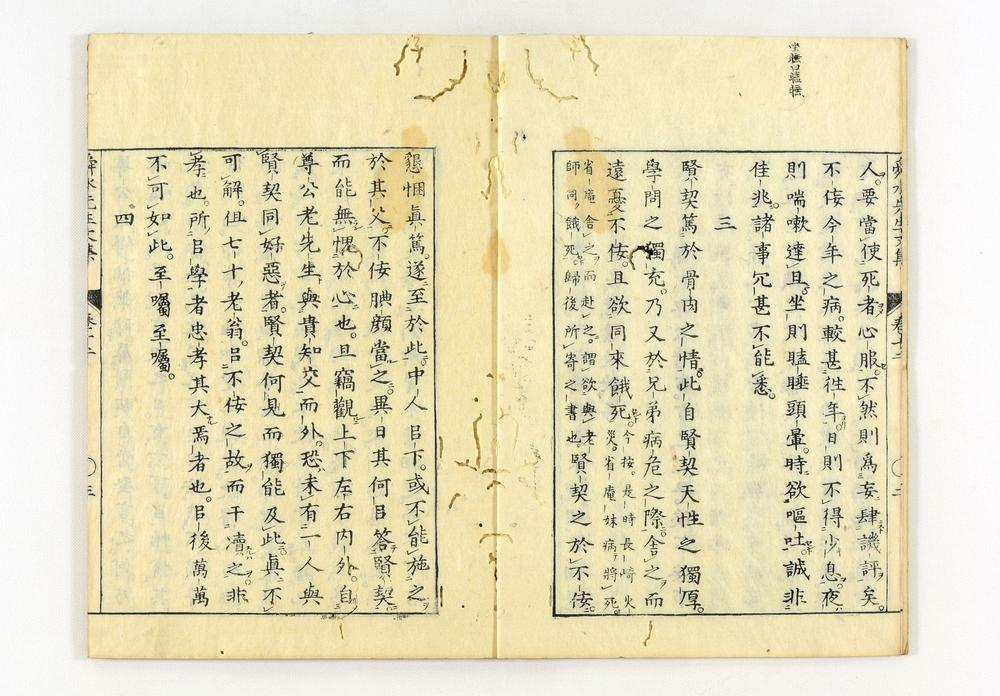 人。要當使死者心服。不然則爲妄肆譏評矣。
不佞今年之病。較甚徃年。日則不得少息。夜
則喘嗽達旦。坐則瞌睡頭暈。時欲嘔吐。誠非
佳兆。諸事冗甚不能悉。
三
賢契篤於骨肉之情。此自賢契天性之獨厚。
學問之獨充。乃又於兄弟病危之際。舍之而
遠憂不佞。且欲同來餓死。今按。是時長崎火災。省庵妹病將死。
省庵舍之而赴之。謂欲與老師同餓死。歸後所寄之書也。賢契之於不佞。
懇悃眞篤。遂至於此。中人㠯下。或不能施之
於其父。不佞腆顏當之。異日其何㠯答賢契。
而能無愧於心也。且竊觀上下左右内外。自
尊公老先生與貴知交而外。恐未有一人與
賢契同好惡者。賢契何見而獨能及此。眞不
可解。但七十老翁。㠯不佞之故。而干瀆之。非
孝也。所㠯學者忠孝其大焉者也。㠯後萬萬
不可如此。至囑至囑。
四
舜水先生文集
卷十二